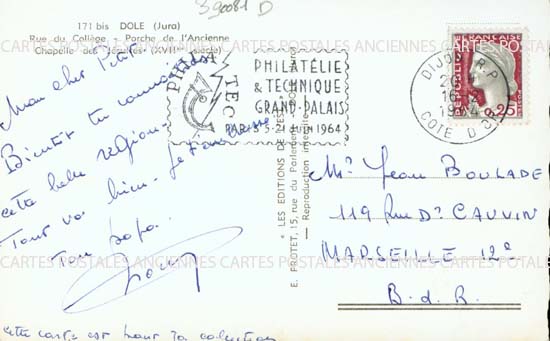 390081 D
171 bis DOLE (Jura)
Rue du Collège - Porche de l'Ancienne
Chapelle des Jésuites (XVIIme siècle)
Mon cher Petit
Bientôt tu connaîtras
cette belle région.
Tout va bien. Je t'embrasse
Ton papa.
cette carte est pour ta collection
PHILATEC
PHILATÉLIE
& TECHNIQUE
GRAND-PALAIS
PARIS 5-21 JUIN 1964
DIJON R.P.
1964
COTE D'OR
REPUBLIQUE FRANÇAISE
0,25
« LES EDITIONS DE L'EST »
E. PROTET, 15, rue du Parlement
Reproduction interdite
Mr Jean BOULADE
119 Rue Dr CAUVIN
MARSEILLE 12e
B.d.R.
CARTES POSTALES ANCIENNES CARTES POSTALES ANCIENNES CARTES POSTALES
CARTES POSTALES ANCIENNES CARTES POSTALES ANCIENNES CARTES POSTALES